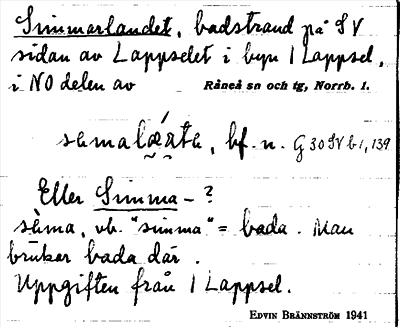 Simmarlandet, badstrand på SV
sidan av Lappselet i byn 1 Lappsel,
i NO delen av Råneå sn och tg, Norrb. l.
bf. n. G 30 SV b 1, 139
Eller Simma - ?
sàma, vb. "simma" = bada. Man
brukar bada där.
Uppgiften från 1 Lappsel.
EDVIN BRÄNNSTRÖM 1941